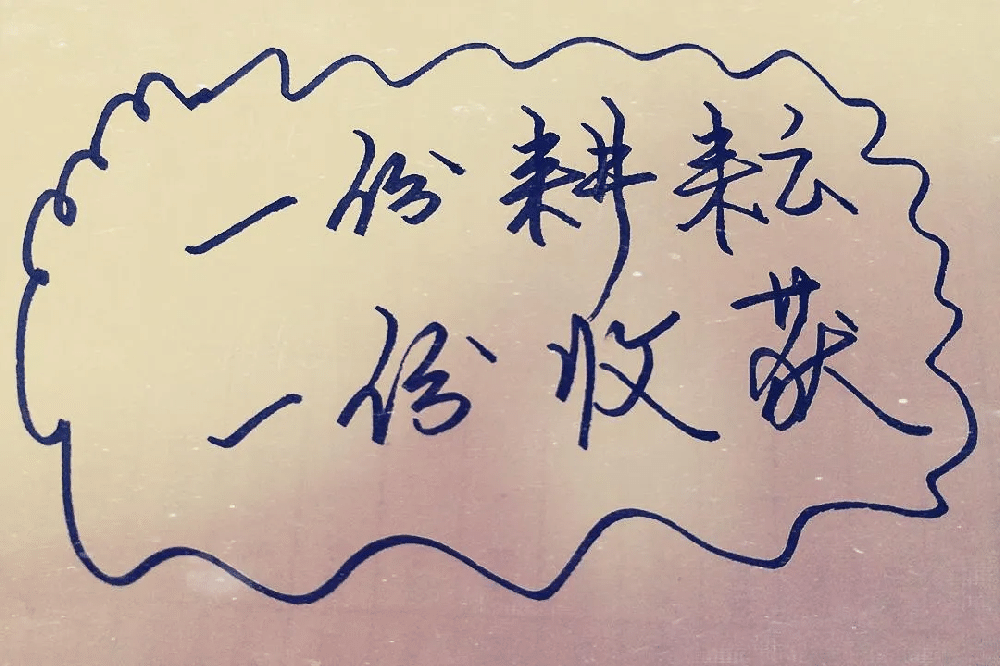 一份耕耘
一份收获